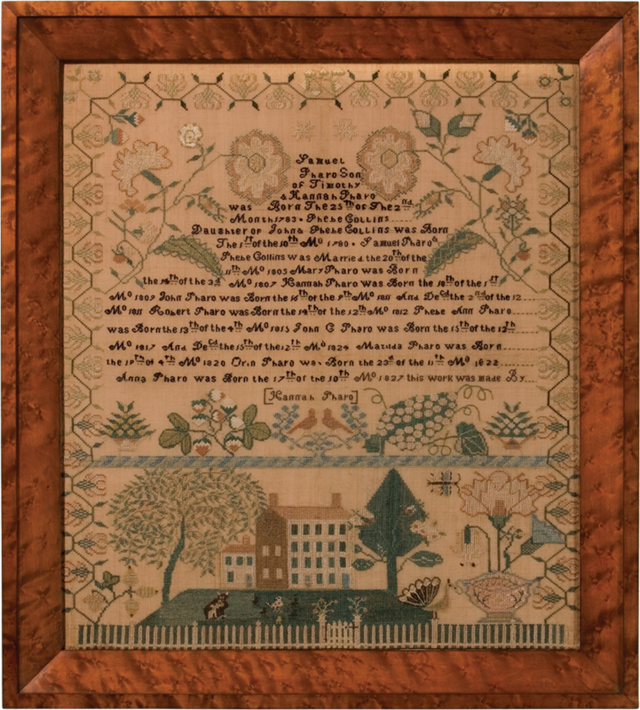 Samuel
Pharo Son
of Timothy
& Hannah Pharo
was Born The 25th of The 2nd
Month 1783 · Phebe Collins
Daughter of John & Phebe Collins was Born
The 1st of the 10th Mo 1780 · Samuel Pharo &
Phebe Collins was Married the 20th of the
11th Mo 1805 Mary Pharo was Born
the 14th of the 3d Mo 1807 Hannah Pharo was Born the 18th of the 1st
Mo 1809 John Pharo was Born the 16th of the 9th Mo 1811 And Decd the 2nd of the 12
Mo 1811 Robert Pharo was Born the 14th of the 12th Mo 1812 Phebe Ann Pharo
was Born the 13th of the 4th Mo 1815 John C Pharo was Born the 15th of the 12th
Mo 1817 And Decd the 15th of the 12th Mo 1824 Matilda Pharo was Born
the 19th of 4th Mo 1820 Orin Pharo was Born the 23d of the 11th Mo 1822
Anna Pharo was Born the 17th of the 10th Mo 1827 this work was made By
Hannah Pharo